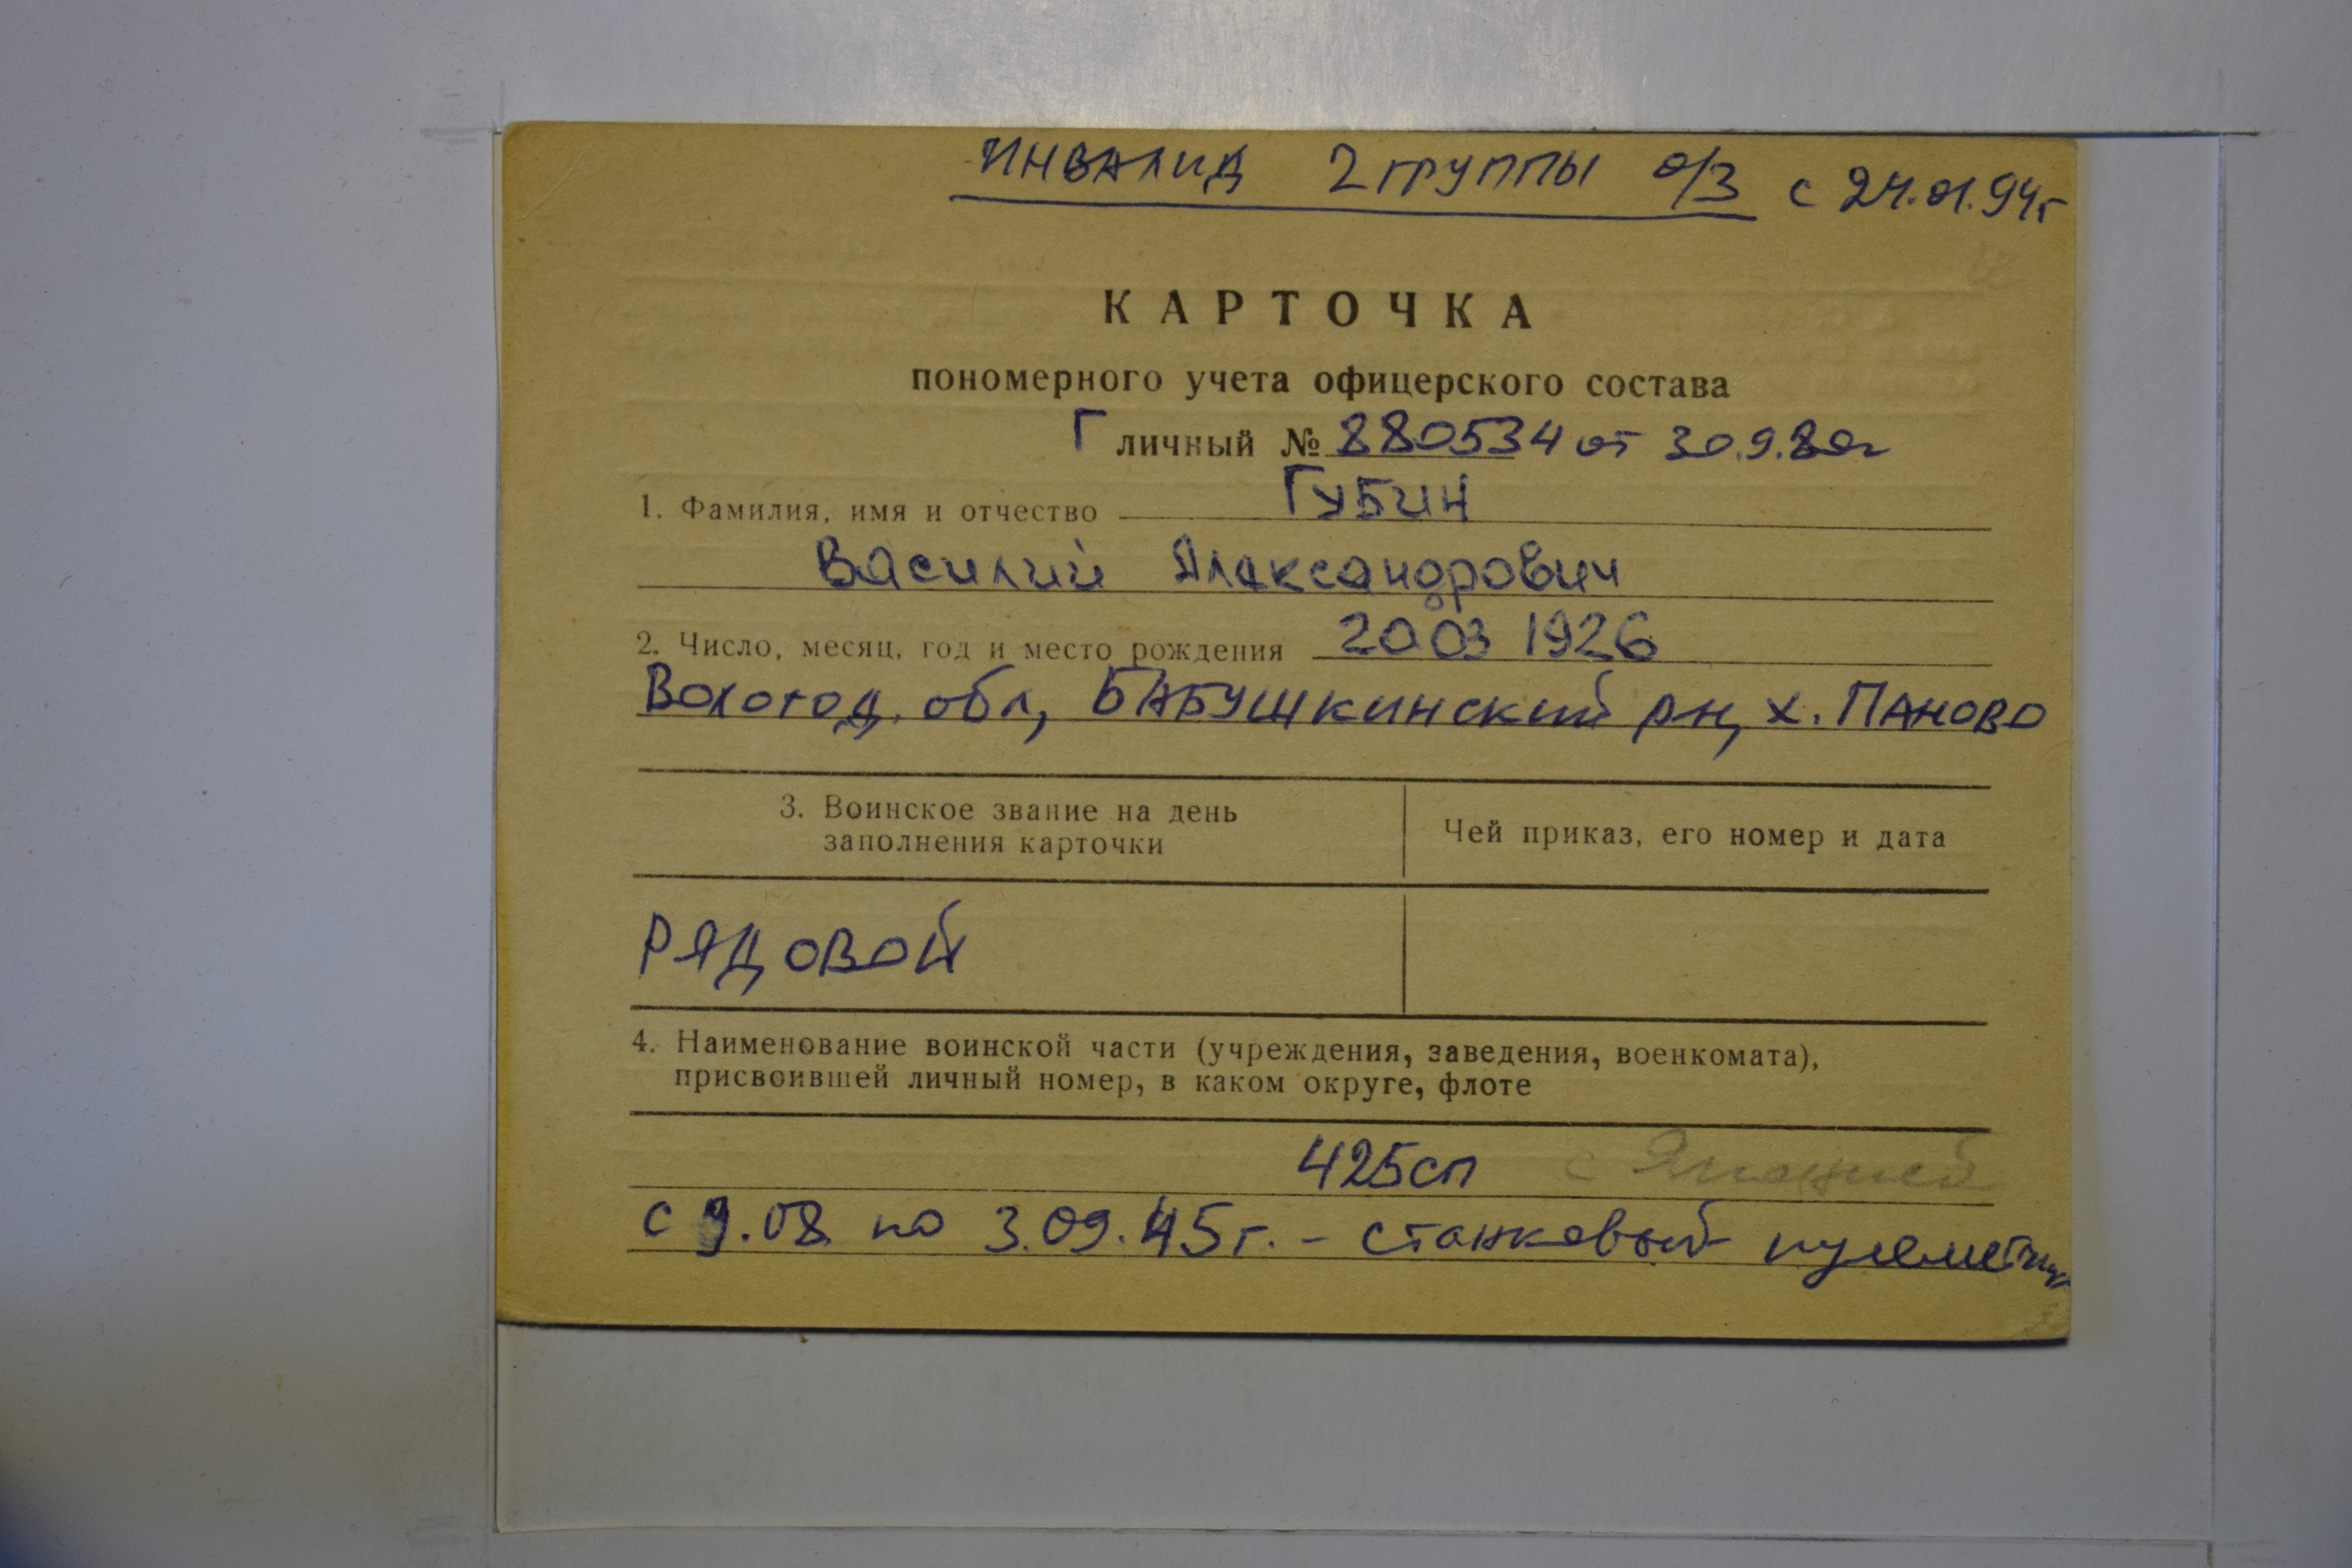 ИНВАЛИД 2 ГРУППЫ о/з с 24.01.94г
КАРТОЧКА
пономерного учета офицерского состава
Г личный № 880534 от 30.9.80г
1. Фамилия, имя и отчество ГУБИН
Василий Александрович
2. Число, месяц, год и место рождения 20 03 1926
Вологод. обл, БАБУШКИНСКИЙ рн, х. ПАНОВО
3. Воинское звание на день
заполнения карточки
Чей приказ, его номер и дата
РЯДОВОЙ
4. Наименование воинской части (учреждения, заведения, военкомата),
присвоившей личный номер, в каком округе, флоте
425сп с Японией
с 9.08 по 3.09.45г. - станковый пулеметчик